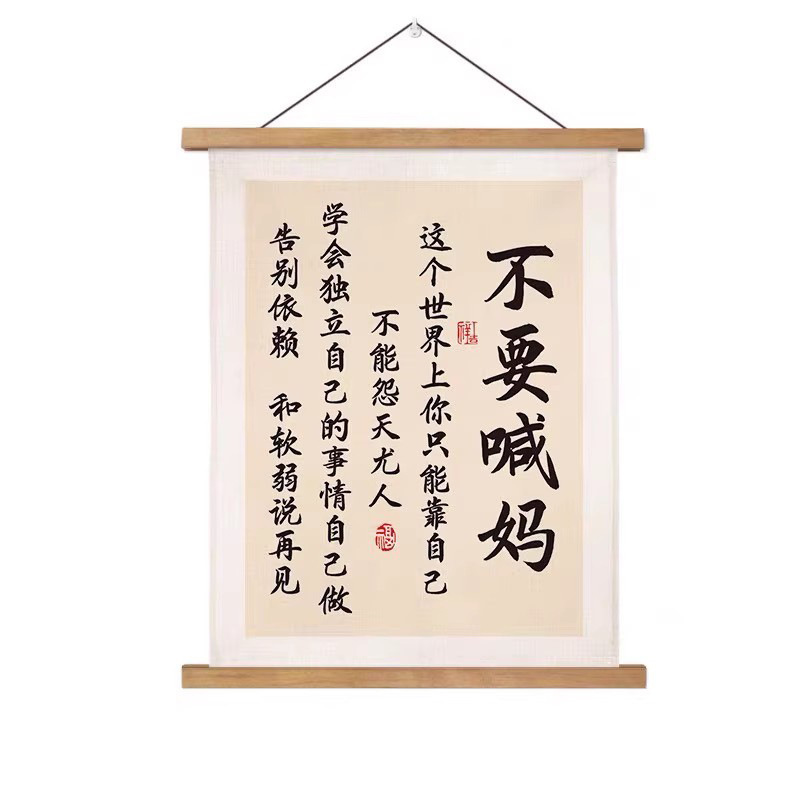 不要喊妈
这个世界上你只能靠自己
不能怨天尤人
学会独立自己的事情自己做
告别依赖 和软弱说再见